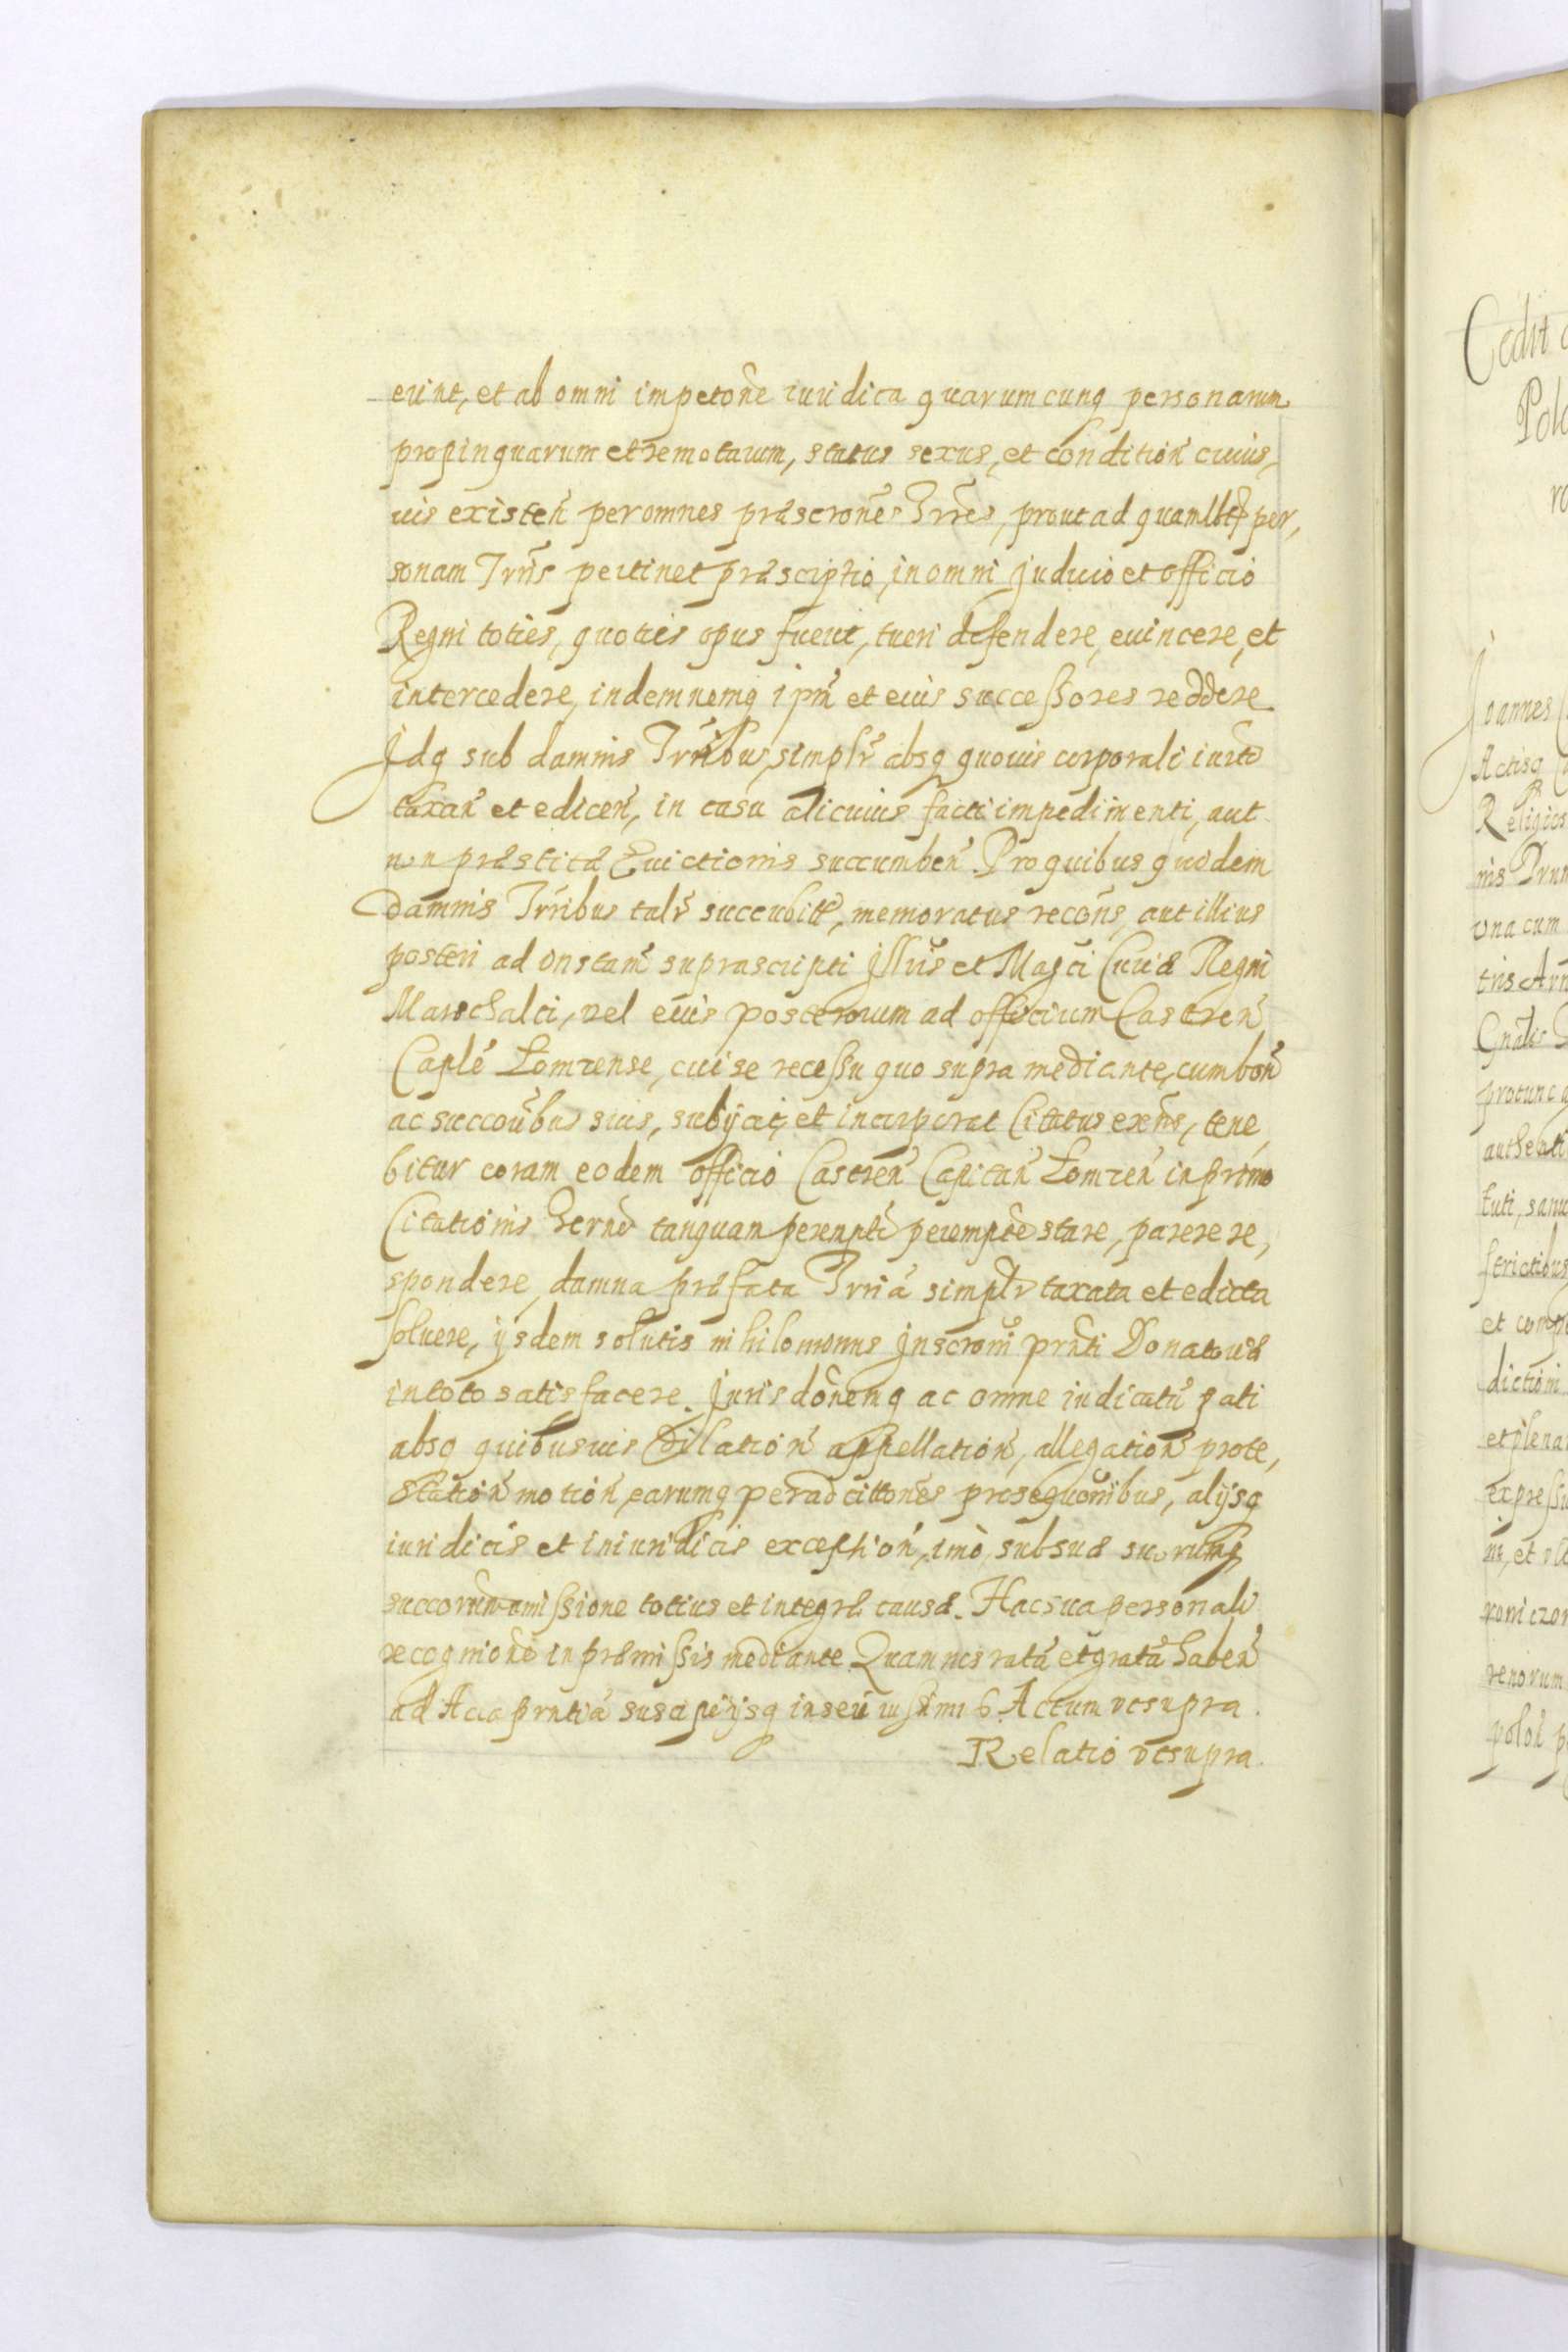 erint, et ab omni impetone iuridica quarumcunq personarum
propinquarum et remotarum, status sexus, et condition cuius,
uis existen per omnes præscrones Trres, prout ad quamlbt per,
sonam Trris pertinet præscriptio, in omni Judicio et officio
Regni toties, quoties opus fuerit, tueri defendere, euincere, et
intercedere, indemnemq ipm et eius successores reddere
Idq sub damnis Trribus, simplr absq quouis corporali iurto
taxan et edicen, in casu alicuius facti impedimenti, aut
non præstitæ Euictionis succumben. Pro quibus quidem
damnis Trribus talr succubitt, memoratus recons, aut illius
posteri ad instam suprascripti Illris et Magci Curiæ Regni
Marschalci, vel eius posterorum ad officium Castren
Caple Lomzense, cui se recessu quo supra mediante, cum bon
ac succoribus suis, subijcit et incorporat Citatus exns, tene,
bitur coram eodem officio Castren Capitan Lomzen in primo
Citationis Termo tanquam perempto perempte stare, parere re,
spondere, damna præfata Trria simplr taxata et edicta
soluere, ijsdem solutis nihilominus Inscroni prnti Donatoriæ
in toto satisfacere. Jurisdonemq ac omne iudicatu pati
absq quibusuis Dilation appellation, allegation prote,
station motion, earumq per ad cittones prosequonibus, alijsq
iuridicis et iniuridicis exception, imò sub suæ suorumq
succorum amissione totius et integræ causæ. Hac sua personali
recognione in præmissis mediante. Quam nos rata et grata haben
ad Acta prntia suscipi ijsq inseri iussimus. Actum vt supra.
Relatio vt supra.
Joannes
Religios
una cum
dictioni
renorum